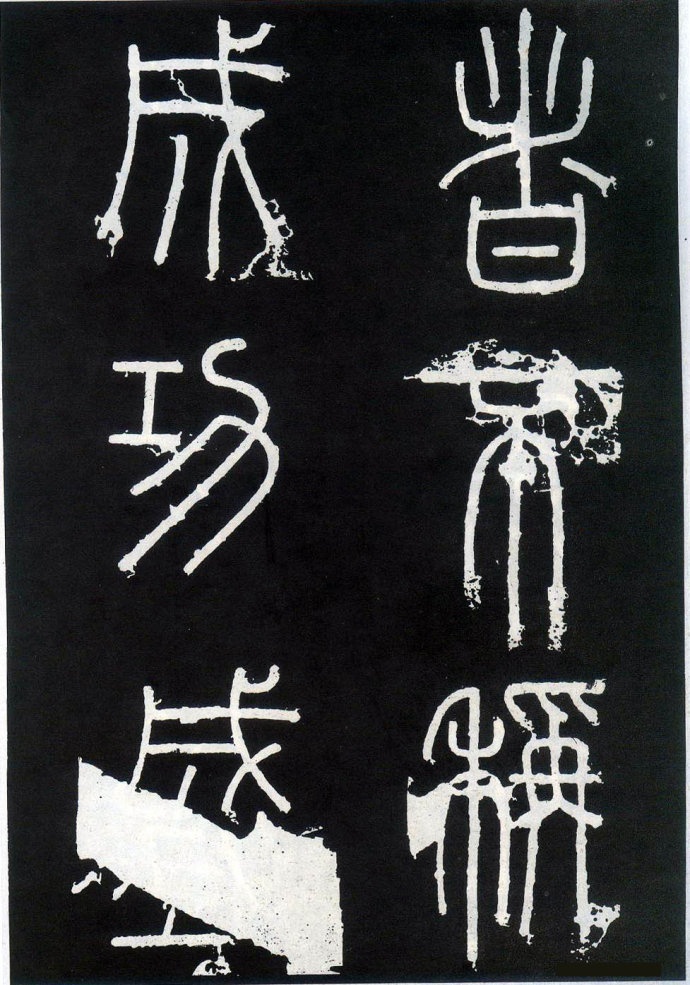 者不稱
成功盛